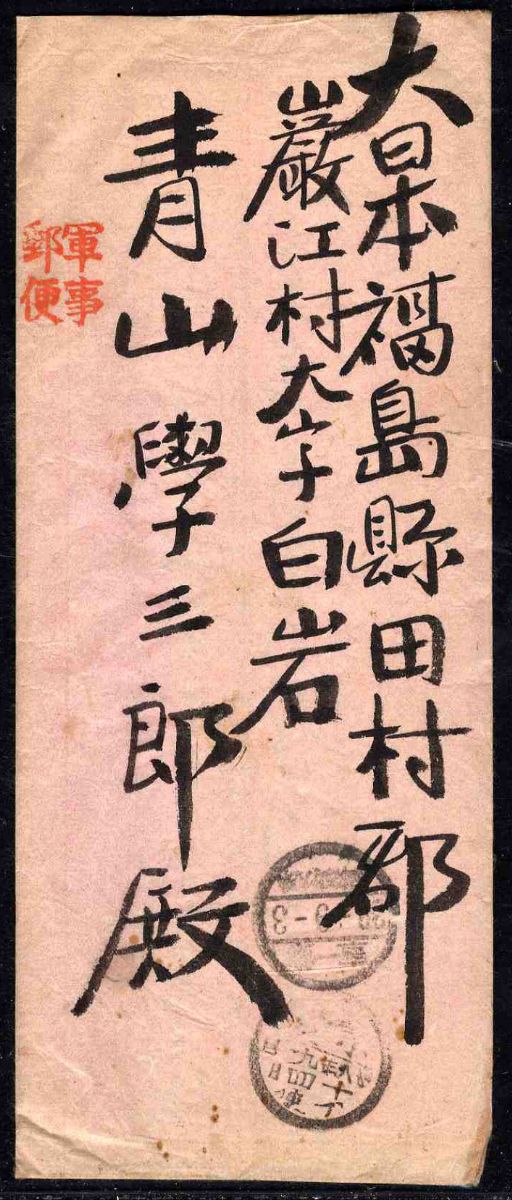 大日本福島縣田村郡
巖江村大字白岩
青山學三郎殿
軍事
郵便